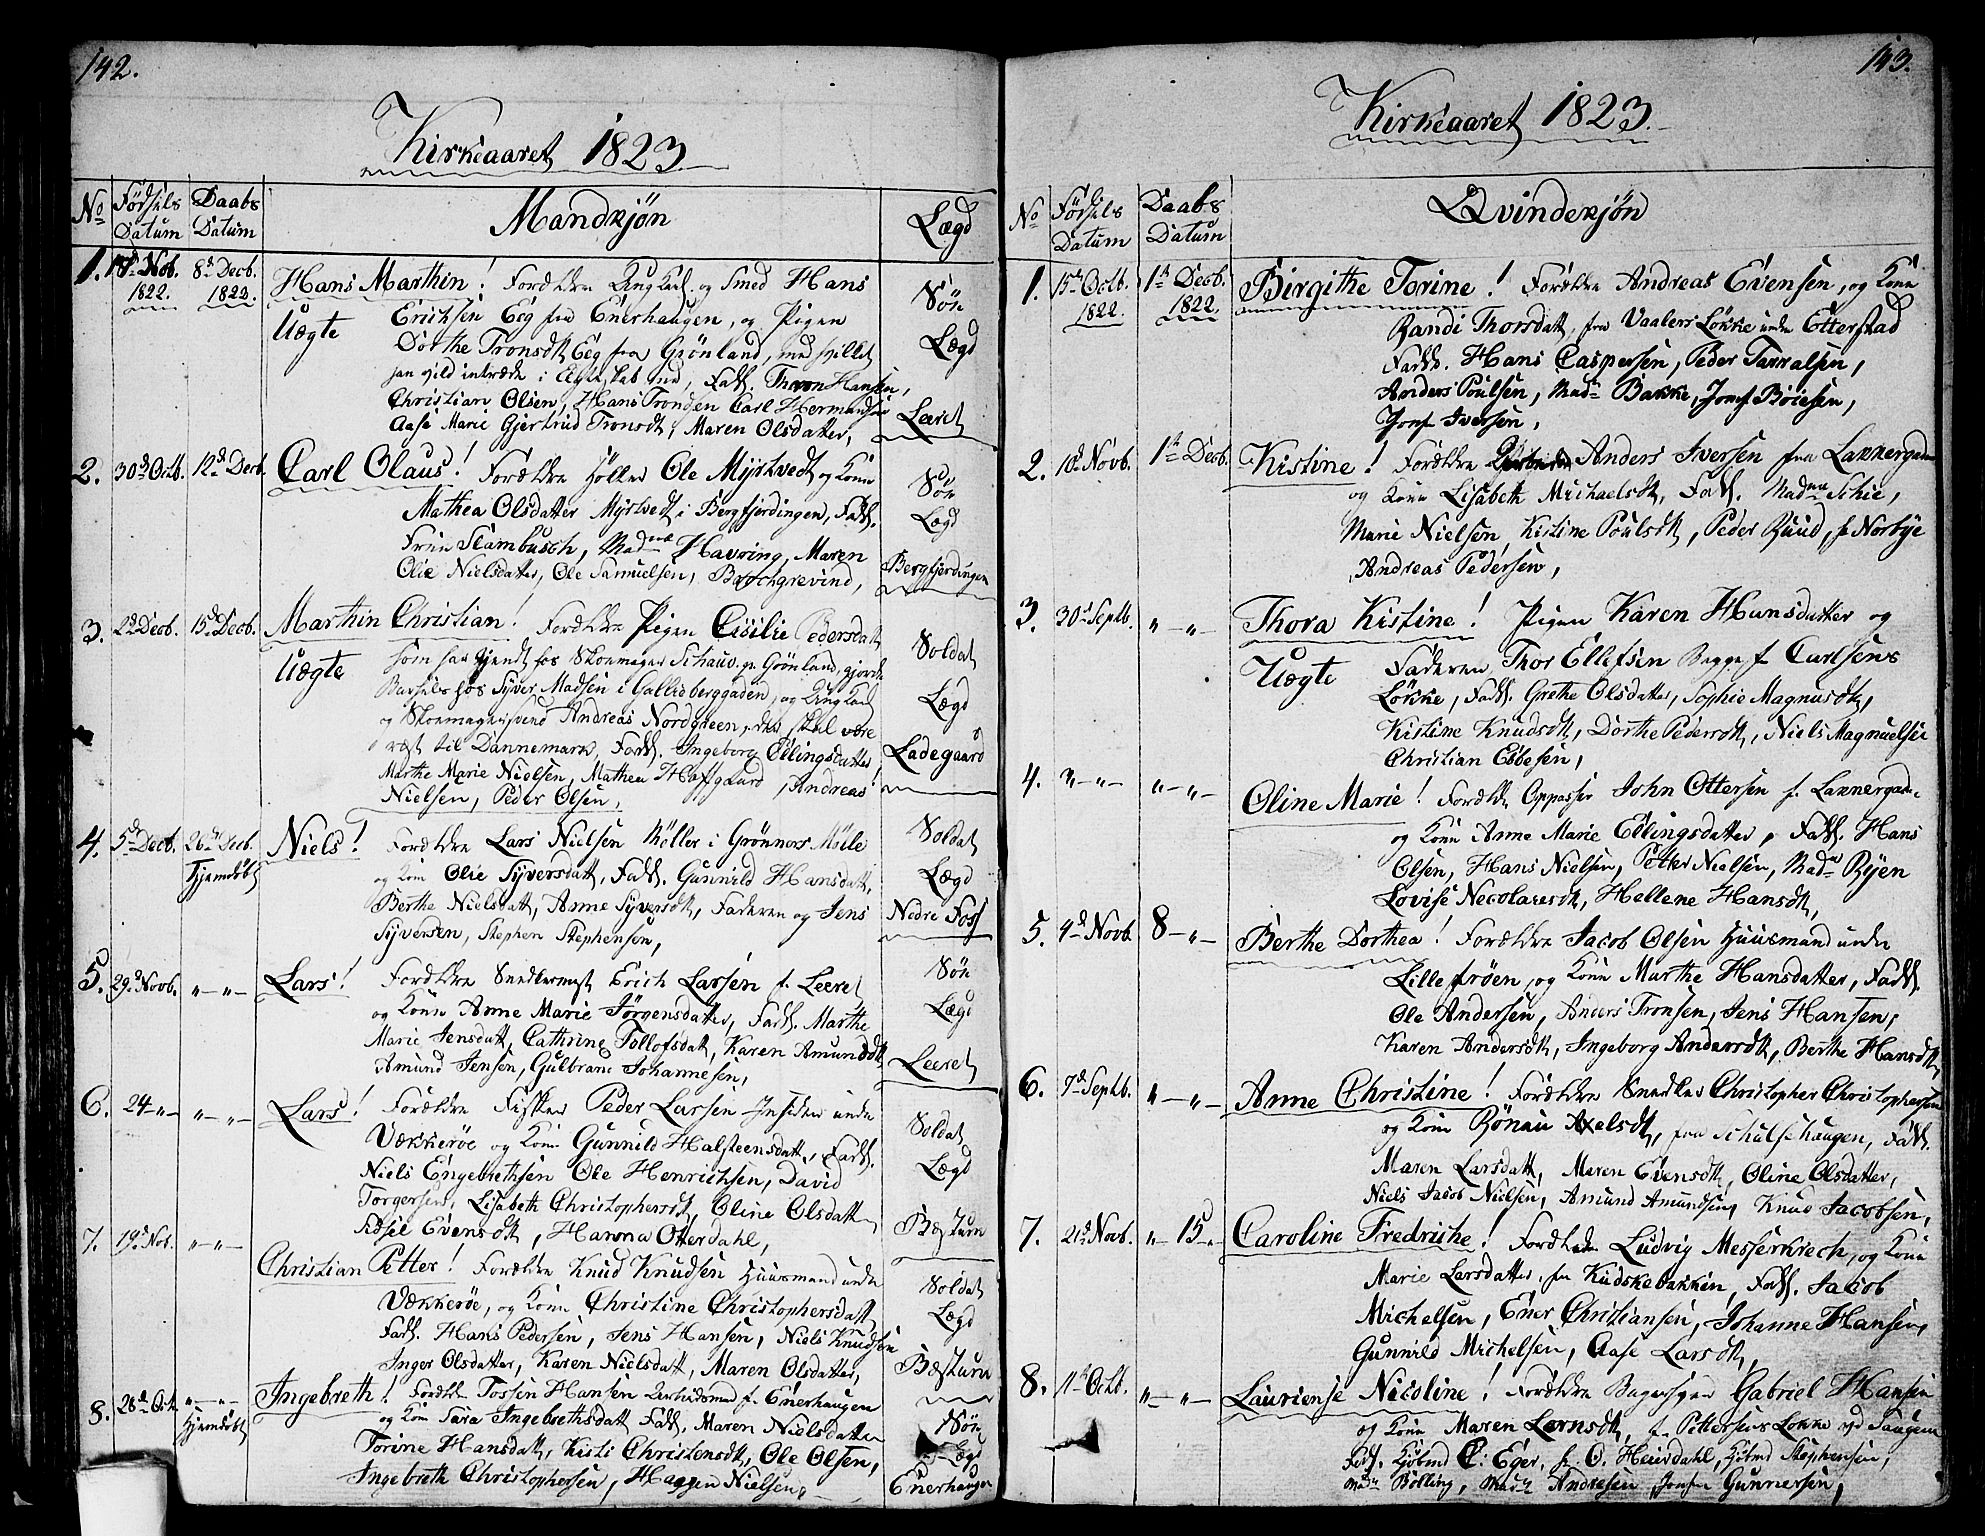 142.
Kirkeaaret 1823.
No Fødsels Datum Daabs Datum Mandkjøn Lægd
1. 18de Nob. 1822. 8de Decb. 1822. Hans Marthin! Forældre Ungkarl og Smed Hans
Uægte Erichsen Eeg fra Enerhaugen, og Pigen
Dorthe Tronsdt Eeg fra Grønland,
Fadd. Thron Hansen,
Christian Olsen, Hans Trondsen Carl Hermansen
Aase Marie Gjertrud Tronsdt, Maren Olsdatter,
Søn Lægd Leeret
2. 30de Octb. 12de Decb. Carl Olaus! Forældre Ole Myrhvedt og Kone
Mathea Olsdatter Myrhvedt i Bergfjerdingen, Fadd.
Frue Stambusch, Madme Havring, Maren
Olie Nielsdatter, Ole Samuelsen, Borchgrevind,
Søn Lægd Bergfjerdingen
3. 2de Decb. 15de Decb. Marthin Christian! Forældre Pigen Cicilie Pedersdatt
Uægte som har tjendt hos Skomager Schaus. paa Grønland, gjorde
Barsels hos Syver Madsen i Galliebergaden, og Ungkarl
og Skomagersvend Andreas Nordgreen, der skal være
reist til Dannemark, Fadd. Ingeborg Edlingsdatter
Marthe Marie Nielsen, Mathea Haffgaard, Andreas
Nielsen, Peder Olsen,
Soldat Lægd Ladegaard
4. 5de Decb. 26de Decb. Hjemdøbt Niels! Forældre Lars Nielsen Møller i Grønners Mølle
og Kone Olie Syversdatt, Fadd. Gunnild Hansdatt,
Berthe Nielsdatt, Anne Syversdt, Faderen og Jens
Syversen, Stephen Stephensen,
Soldat Lægd Nedre Foss
5. 29de Novb. "—"— Lars! Forældre Snedkermest Erich Larsen f. Leeret
og Kone Anne Marie Jørgensdatter, Fadd. Marthe
Marie Jensdatt, Cathrine Tollofsdatt, Karen Amundsdt
Amund Jensen, Gulbran Johannesen,
Søn Lægd Leeret
6. 24—"— "—"— Lars! Forældre Fisker Peder Larsen Inderst under
Vækkerøe og Kone Gunnild Halsteensdatt, Fadd.
Niels Engebrethsen Ole Henrichsen, David
Torgersen, Lisabeth Christophersdt, Oline Olsdatter
Sidsel Evensdt, Hanna Otterdahl,
Soldat Lægd Bæstum
7. 19de Nob. "—"— Christian Petter! Forældre Knud Knudsen Huusmand under
Vækkerøe, og Kone Christine Christophersdatt
Fadd. Hans Pedersen, Jens Hansen, Niels Knudsen
Inger Olsdatter, Karen Nielsdatt, Maren Olsdatter,
Soldat Lægd Bæstum
8. 28de Oct. "—"— Hjemdøbt Ingebreth! Forældre Tosten Hansen Arbeidsmd f. Enerhaugen
og Kone Sara Ingebrethsdatt Fadd. Maren Nielsdatter
Torine Hansdatt, Kisti Christensdt, Ole Olsen,
Ingebreth Christophersen, Haagen Nielsen,
Søn Lægd Enerhaugen
143.
Kirkeaaret 1823.
No Fødsels Datum Daabs Datum Qvindekjøn
1. 15de Octb. 1822. 1ste Decb. 1822. Birgithe Torine! Forældre Andreas Evensen, og Kone
Randi Thorsdatt, fra Vaalers Løkke under Etterstad
Fadd. Hans Caspersen, Peder Tarralsen,
Anders Poulsen, Madm Bakke, Jomf Boiesen,
Jomf Iversen,
2. 10de Novb. 1ste Decb. Kistine! Forældre Anders Iversen fra Lakkergaden
og Kone Lisabeth Michaelsdt, Fadd. Madme Schie,
Marie Nielsen, Kistine Poulsdt, Peder Ruud, f. Norbye
Andreas Pedersen,
3. 30de Septb. "—"— Thora Kistine! Pigen Karen Hansdatter og
Uægte Faderen Thor Ellefsen Begge f. Carlsens
Løkke, Fadd. Grethe Olsdatter, Sophie Magnusdt,
Kistine Knudsdt, Dorthe Pedersdt, Niels Magnuelsen
Christian Ebbesen,
4. "—"— "—"— Oline Marie! Forældre Oppasser John Ottersen f. Lakkergaden
og Kone Anne Marie Edlingsdatter, Fadd. Hans
Olsen, Hans Nielsen, Petter Nielsen, Madm Ryen
Lovise Necolaresdt, Hellene Hansdt,
5. 4de Novb 8—"— Berthe Dorthea! Forældre Jacob Olsen Huusmand under
Lillefrøen, og Kone Marthe Hansdatter, Fadd.
Ole Andersen, Anders Tronsen, Jens Hansen,
Karen Andersdt, Ingeborg Andersdt, Berthe Hansdt,
6. 7de Septb. "—"— Anne Christine! Forældre Snedker Christopher Christophersen
og Kone Rønau Axelsdt, fra Schulsehaugen, Fadd.
Maren Larsdatt, Maren Evensdt, Oline Olsdatter,
Niels Jacob Nielsen, Amund Amundsen, Knud Jacobsen,
7. 21de Novb. "—15— Caroline Fredrithe! Forældre Ludvig Messerkrech, og Kone
Marie Larsdatter, fra Kudskebakken, Fadd. Jacob
Michelsen, Ener Christiansen, Johanne Hansen,
Gunnild Michelsen, Aase Larsdt,
8. 11te Octb. "—"— Lauriense Nicoline! Forældre Gabriel Hansen
og Kone Maren Lornsdt, f. Pettersens Løkke ved Saugene
Fadd. Kjøbmd C: Eger, H. O. Heierdahl, Kjøbmd Stephensen,
Madm Bølling, Madm Andresen, Jomfr Gunnersen,